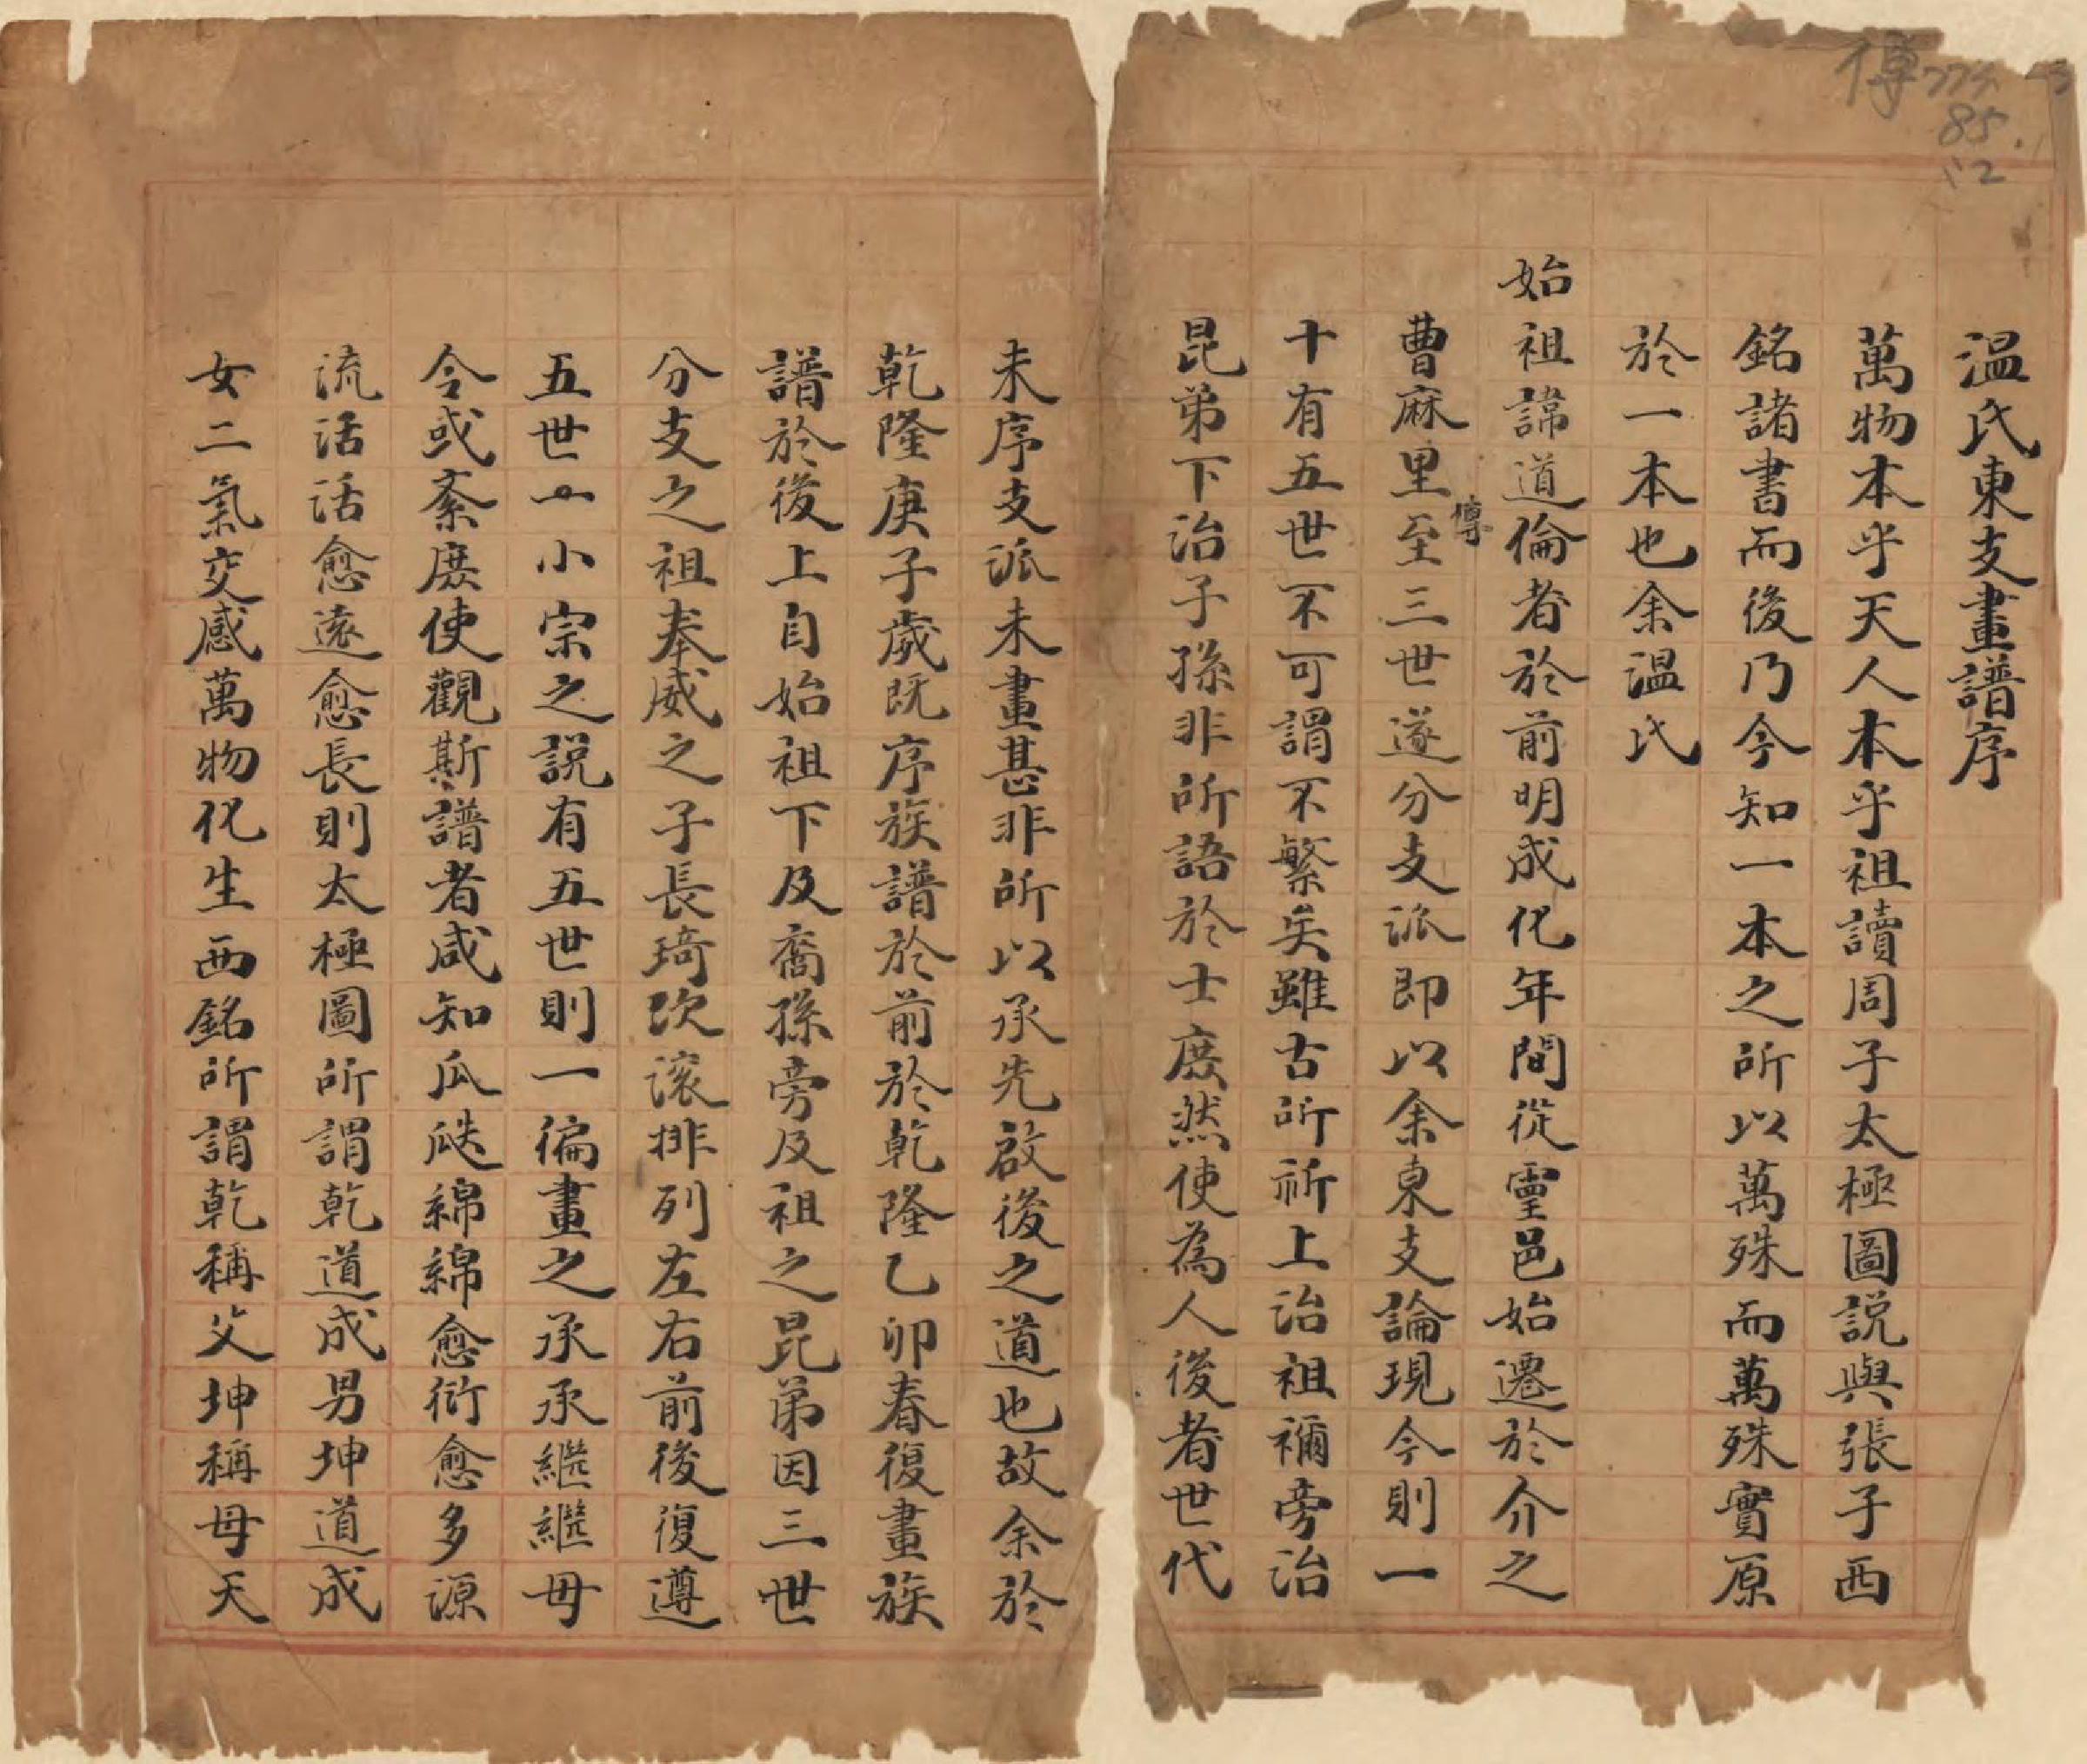 傳 774
85.
12
温氏東支畫譜序
萬物本乎天人本乎祖讀周子太極圖説與張子西
銘諸書而後乃今知一本之所以萬殊而萬殊實原
於一本也余温氏
始祖諱道倫者於前明成化年間從靈邑始遷於介之
曹麻里傳至三世遂分支派即以余東支論現今則一
十有五世不可謂不繁矣雖古所祈上治祖禰旁治
昆弟下治子孫非所語於士庶然使為人後者世代
未序支派未畫甚非所以承先啟後之道也故余於
乾隆庚子歲既序族譜於前於乾隆乙卯春復畫族
譜於後上自始祖下及裔孫旁及祖之昆弟因三世
分支之祖奉威之子長琦次滚排列左右前後復遵
五世一小宗之説有五世則一徧畫之承承繼繼毋
令或紊庶使觀斯譜者咸知瓜瓞綿綿愈衍愈多源
流活活愈遠愈長則太極圖所謂乾道成男坤道成
女二氣交感萬物化生西銘所謂乾稱父坤稱母天